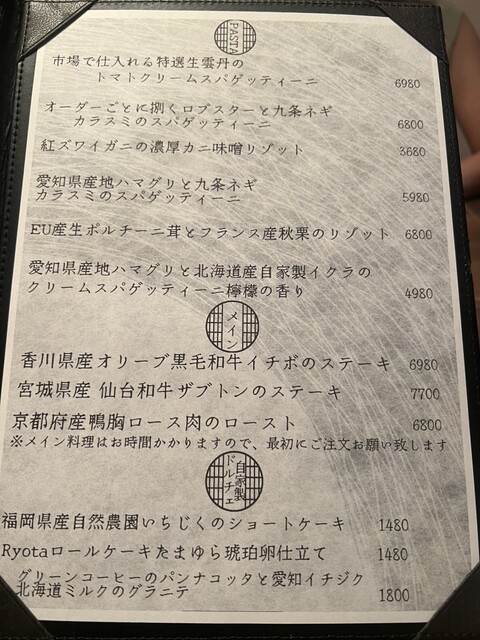 PASTA
市場で仕入れる特選生雲丹の
トマトクリームスパゲッティーニ 6980
オーダーごとに捌くロブスターと九条ネギ
カラスミのスパゲッティーニ 6800
紅ズワイガニの濃厚カニ味噌リゾット 3680
愛知県産地ハマグリと九条ネギ
カラスミのスパゲッティーニ 5980
EU産生ポルチーニ茸とフランス産秋栗のリゾット 6800
愛知県産地ハマグリと北海道産自家製イクラの
クリームスパゲッティーニ檸檬の香り 4980
メイン
香川県産オリーブ黒毛和牛イチボのステーキ 6980
宮城県産 仙台和牛ザブトンのステーキ 7700
京都府産鴨胸ロース肉のロースト 6800
※メイン料理はお時間かかりますので、最初にご注文お願い致します
自家製
ドルチェ
福岡県産自然農園いちじくのショートケーキ 1480
Ryotaロールケーキたまゆら琥珀卵仕立て 1480
グリーンコーヒーのパンナコッタと愛知イチジク
北海道ミルクのグラニテ 1800